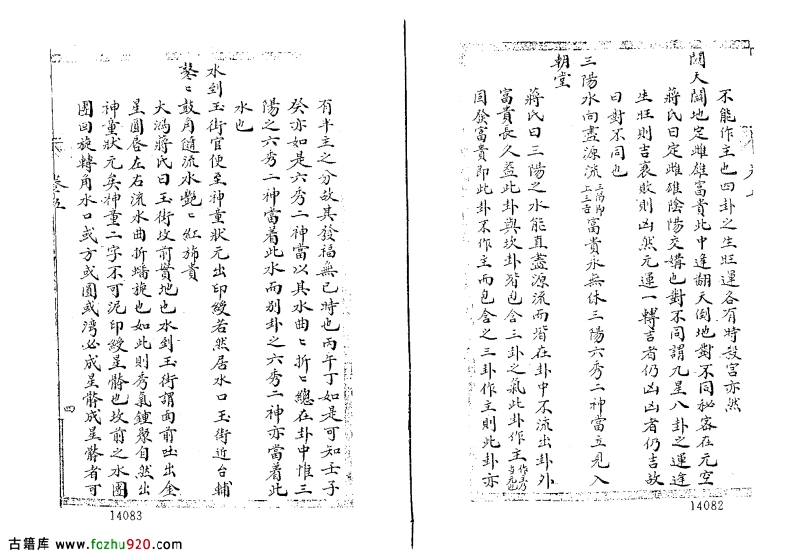 不能作主也四卦之生旺運各有時殺宮亦然
關天關地定雌雄富貴此中逢翻天倒地對不同秘密在元空
蔣氏曰定雌雄陰陽交媾也對不同謂九星八卦之運逢
生旺則吉衰敗則凶然元運一轉吉者仍凶凶者仍吉故
曰對不同也
三陽水向盡源流富貴永無休三陽六秀二神當立見入
朝堂
蔣氏曰三陽之水能直盡源流而皆在卦中不流出卦外
富貴長久蓋此卦與坎卦皆包含三卦之氣此卦作主
固發富貴即此卦不作主而包含之三卦作主則此卦亦
14082
有半主之分故其發福無已時也丙午丁如是可知壬子
癸亦如是六秀二神當以其水曲〻折〻總在卦中惟三
陽之六秀二神當着此水而別卦之六秀二神亦當着此
水也
水到玉街官便至神童狀元出印綬若然居水口玉街近台輔
鼕〻鼓角隨流水艷〻紅旆貴
大鴻蔣氏曰玉街坟前實地也水到玉街謂面前吐出金
星圓唇左右流水曲折蟠旋也如此則秀氣鍾聚自然出
神童狀元矣神童二字不可泥印綬星髂也坟前之水團
團回旋轉角水口或方或圓或灣必成星髂成星髂者可
卷五
四
14083
古籍库 www.fozhu920.com